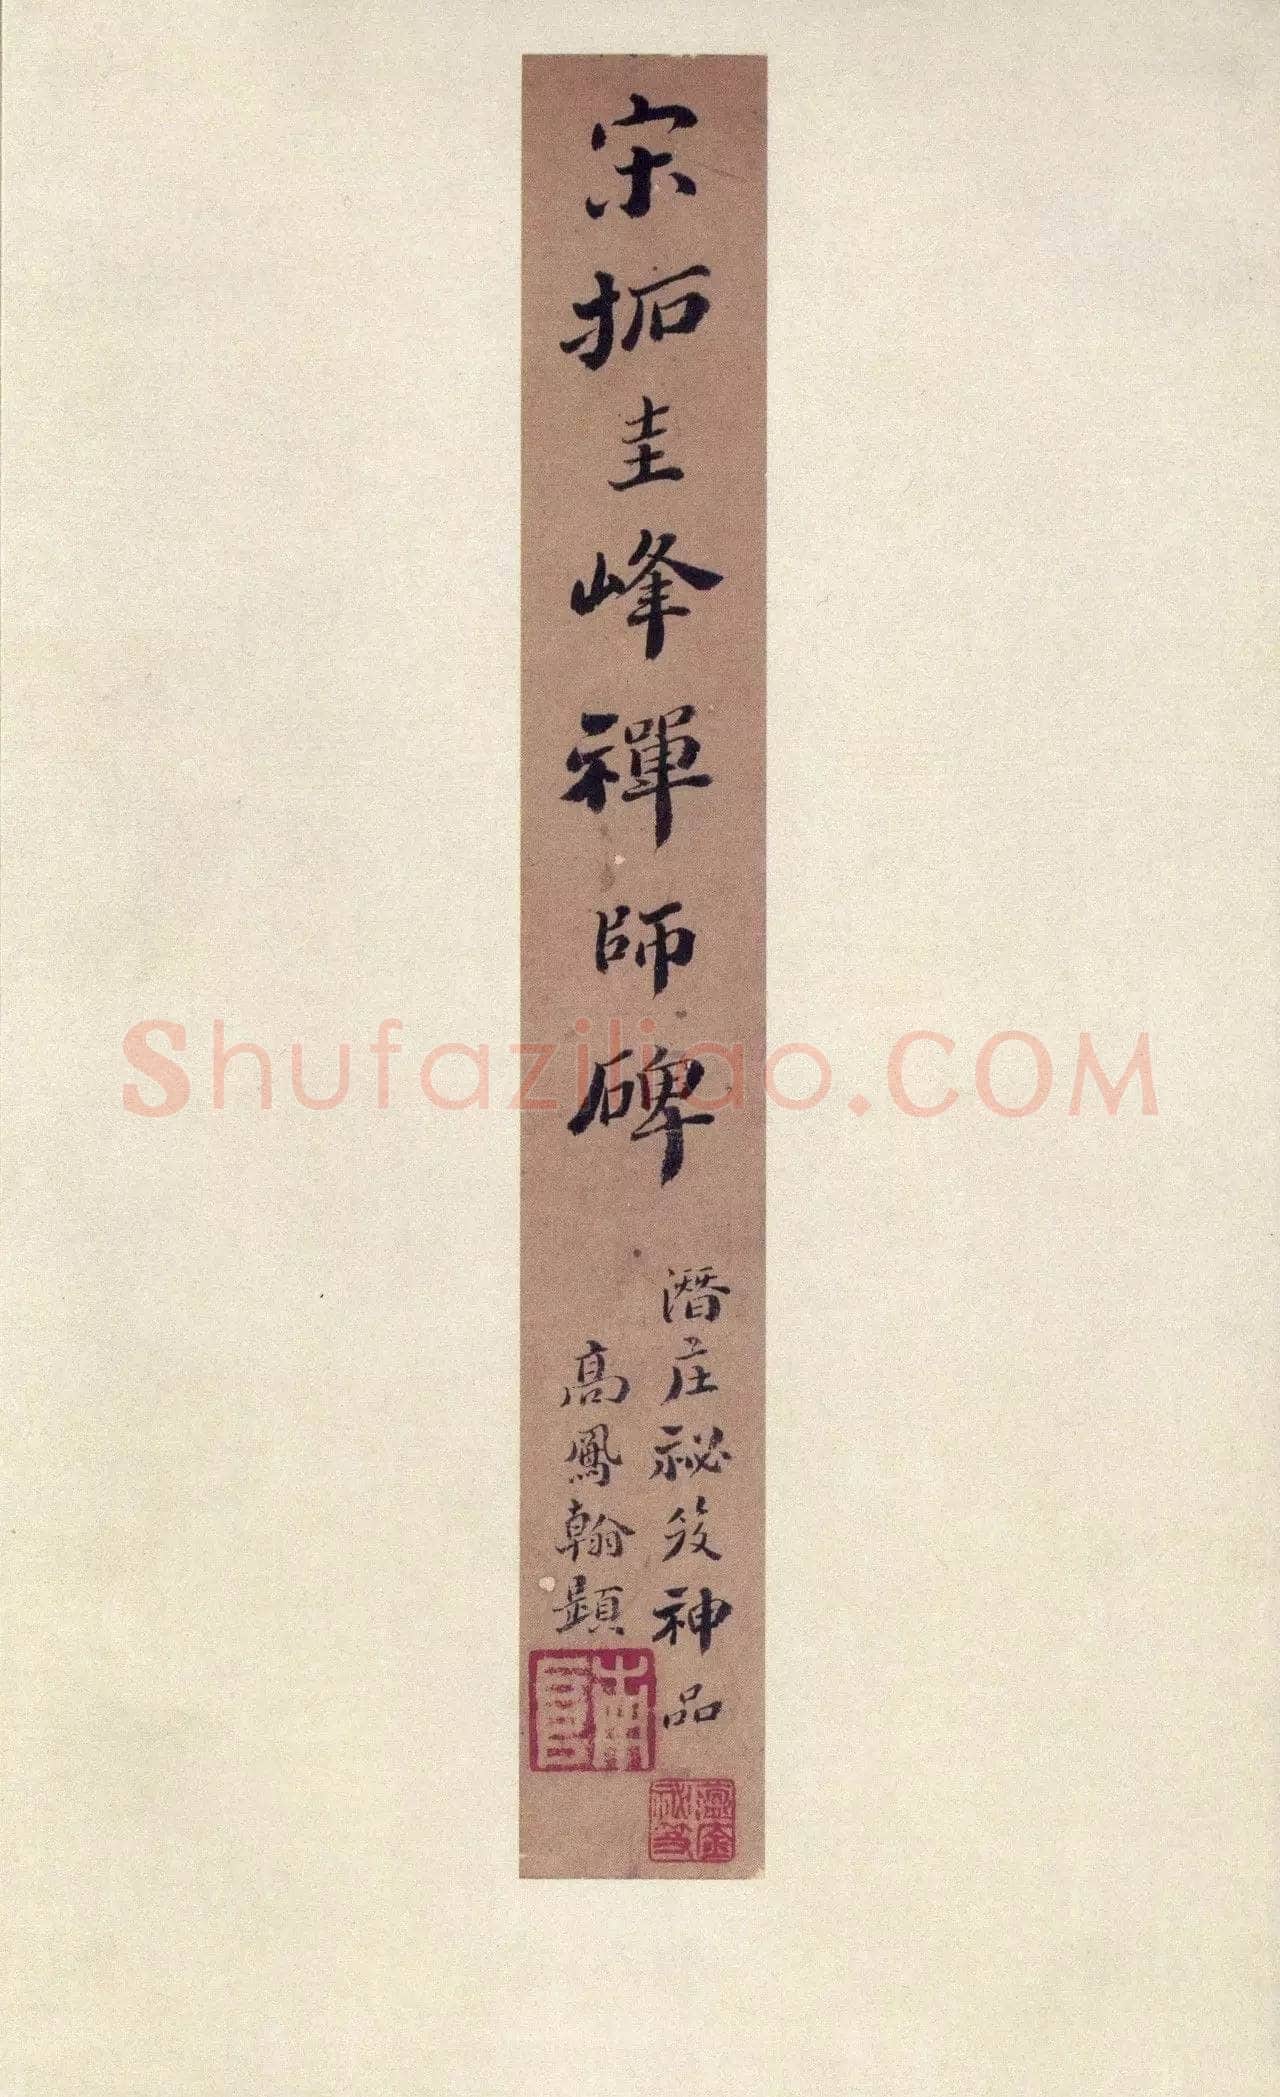 宋拓圭峰禪師碑
潛庄祕笈神品
高鳳翰題
Shufaziliao.COM